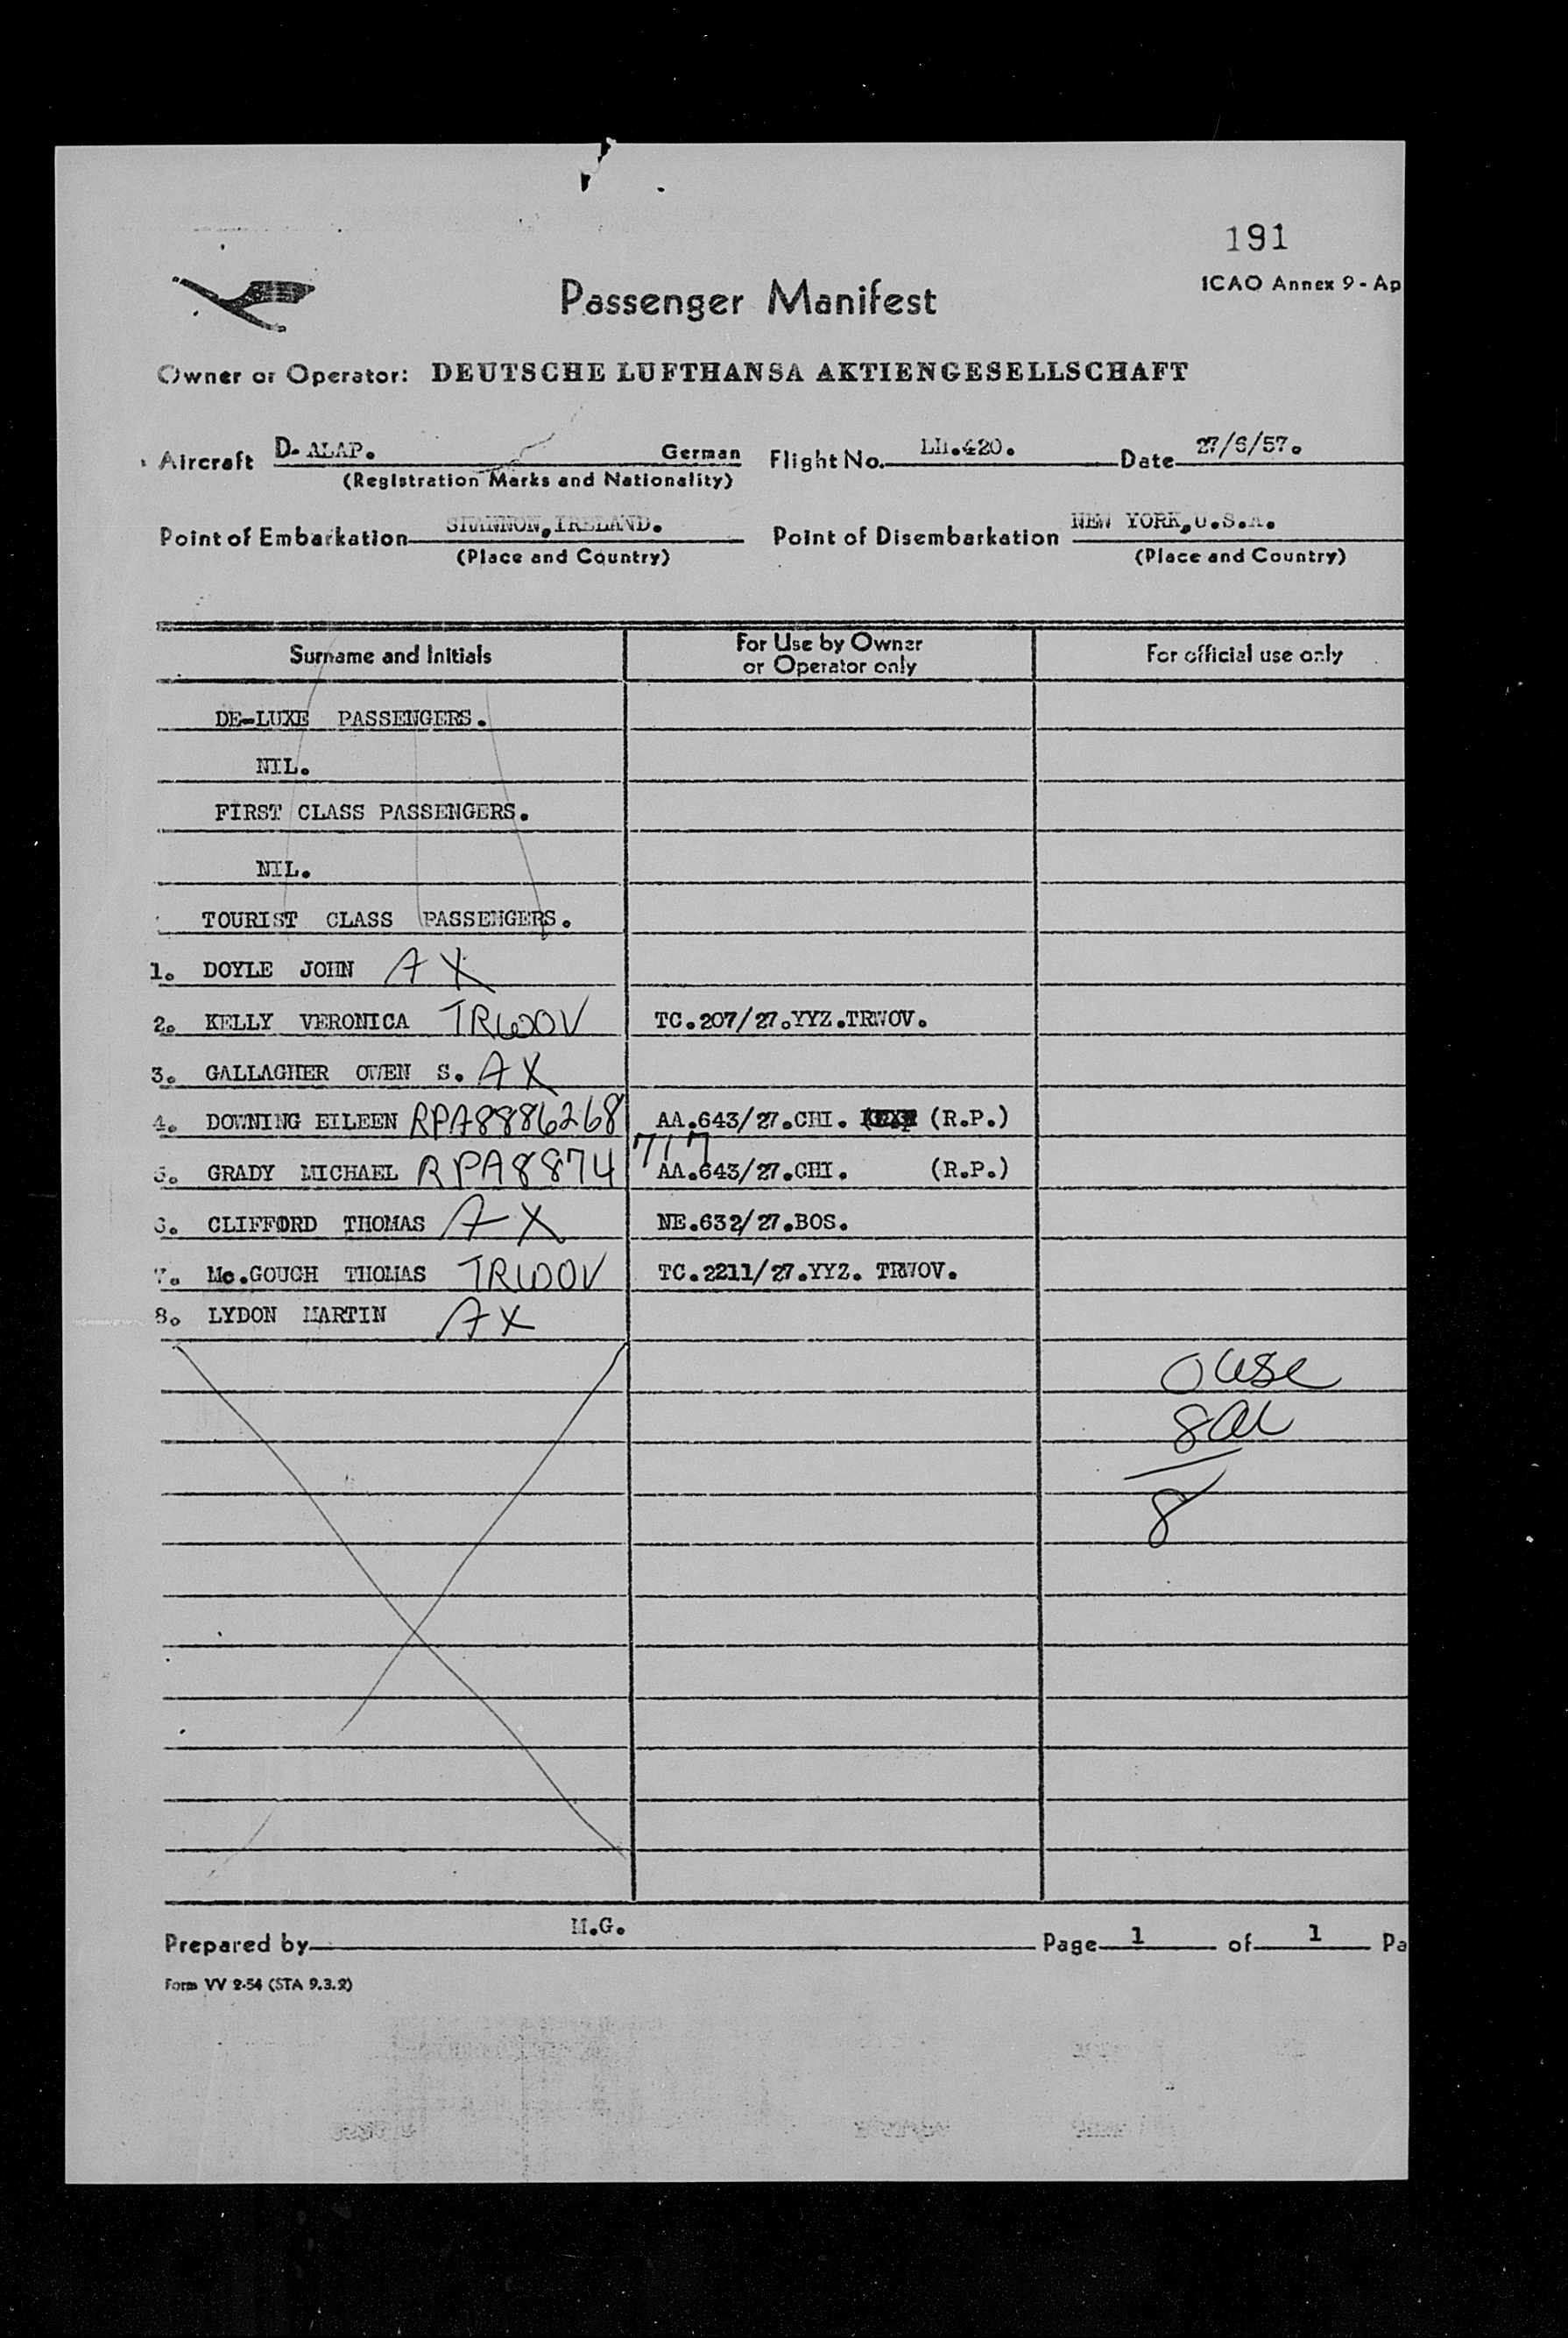 191
ICAO Annex 9 - Ap
Passenger Manifest
Owner or Operator: DEUTSCHE LUFTHANSA AKTIENGESELLSCHAFT
Aircraft D-ALAP. German Flight No. LH.420. Date 27/6/57.
(Registration Marks and Nationality)
Point of Embarkation SHANNON,IRELAND. Point of Disembarkation NEW YORK,U.S.A.
(Place and Country) (Place and Country)
Surname and Initials For Use by Owner or Operator only For official use only
DE-LUXE PASSENGERS.
NIL.
FIRST CLASS PASSENGERS.
NIL.
TOURIST CLASS PASSENGERS.
1. DOYLE JOHN AX
2. KELLY VERONICA TRWOV TC.207/27.YYZ.TRWOV.
3. GALLAGHER OWEN S. AX
4. DOWNING EILEEN RPA8886268 AA.643/27.CHI. (R.P.)
5. GRADY MICHAEL RPA8874717 AA.643/27.CHI. (R.P.)
6. CLIFFORD THOMAS AX NE.632/27.BOS.
7. Mc.GOUGH THOMAS TRWOV TC.2211/27.YYZ. TRWOV.
8. LYDON MARTIN AX
0 USC
8 al
8
Prepared by M.G. Page 1 of 1 Pa
Form VV 2-54 (STA 9.3.2)